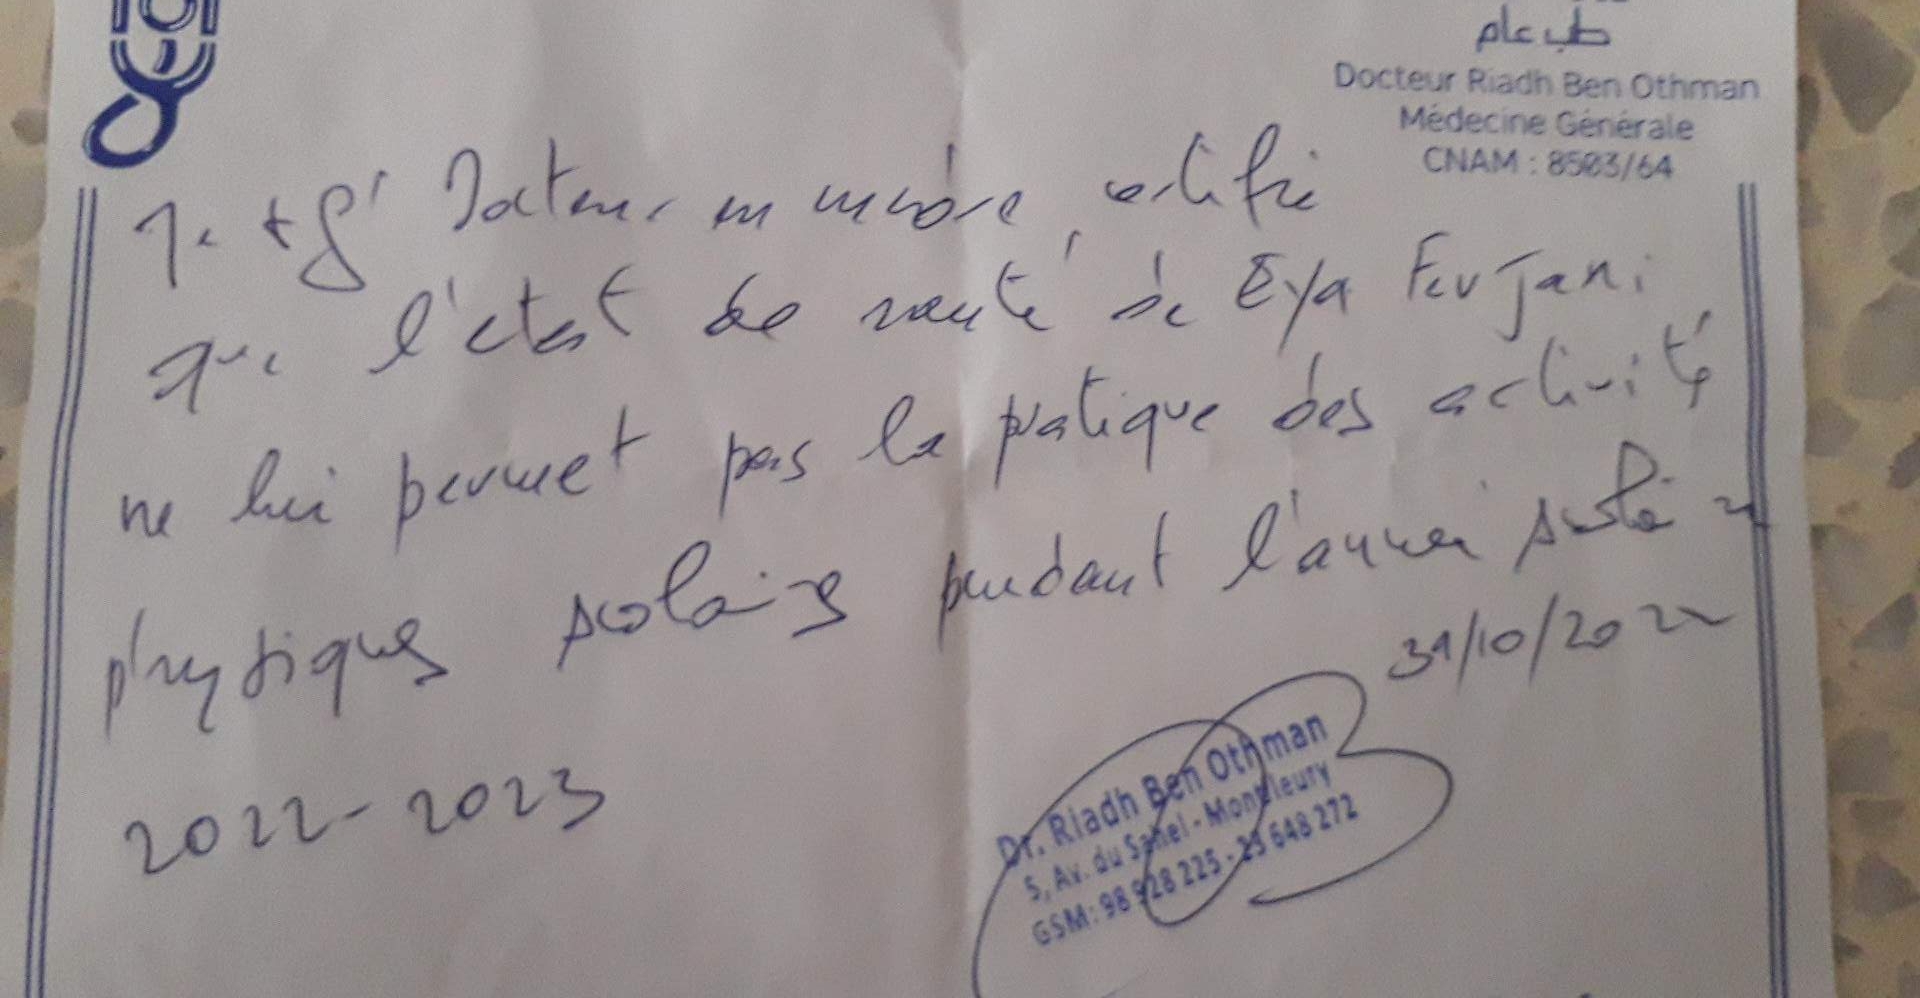 طب عام
Docteur Riadh Ben Othman
Médecine Générale
CNAM : 8503/64
Je Docteur en médecine certifie
que l'état de santé de Eya Ferjani
ne lui permet pas la pratique des activités
physiques scolaires pendant l'année scolaire
2022-2023
31/10/2022
Dr. Riadh Ben Othman
5, Av. du Sahel - Montfleury
GSM: 98 928 225 - 23 648 272